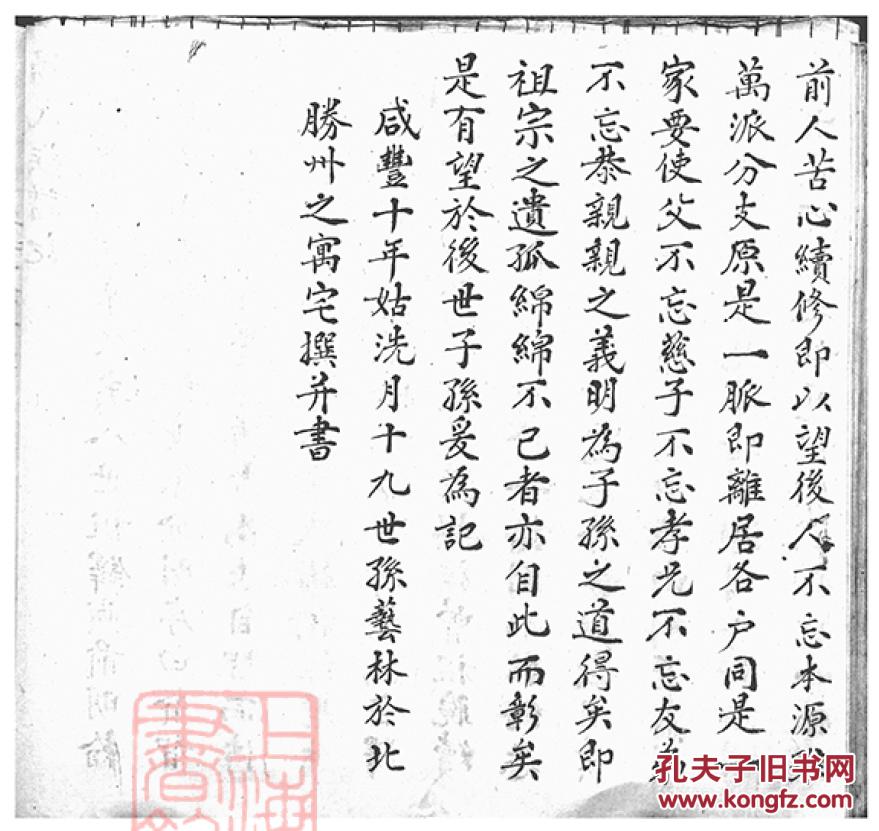 前人苦心續修即以望後人不忘本源
萬派分支原是一脈即離居各户同是一
家要使父不忘慈子不忘孝兄不忘友弟
不忘恭親親之義明為子孫之道得矣即
祖宗之遺孤綿綿不已者亦自此而彰矣
是有望於後世子孫爰為記
咸豐十年姑洗月十九世孫藝林於北
勝州之寓宅撰并書
上海
書
孔夫子旧书网
www.kongfz.com